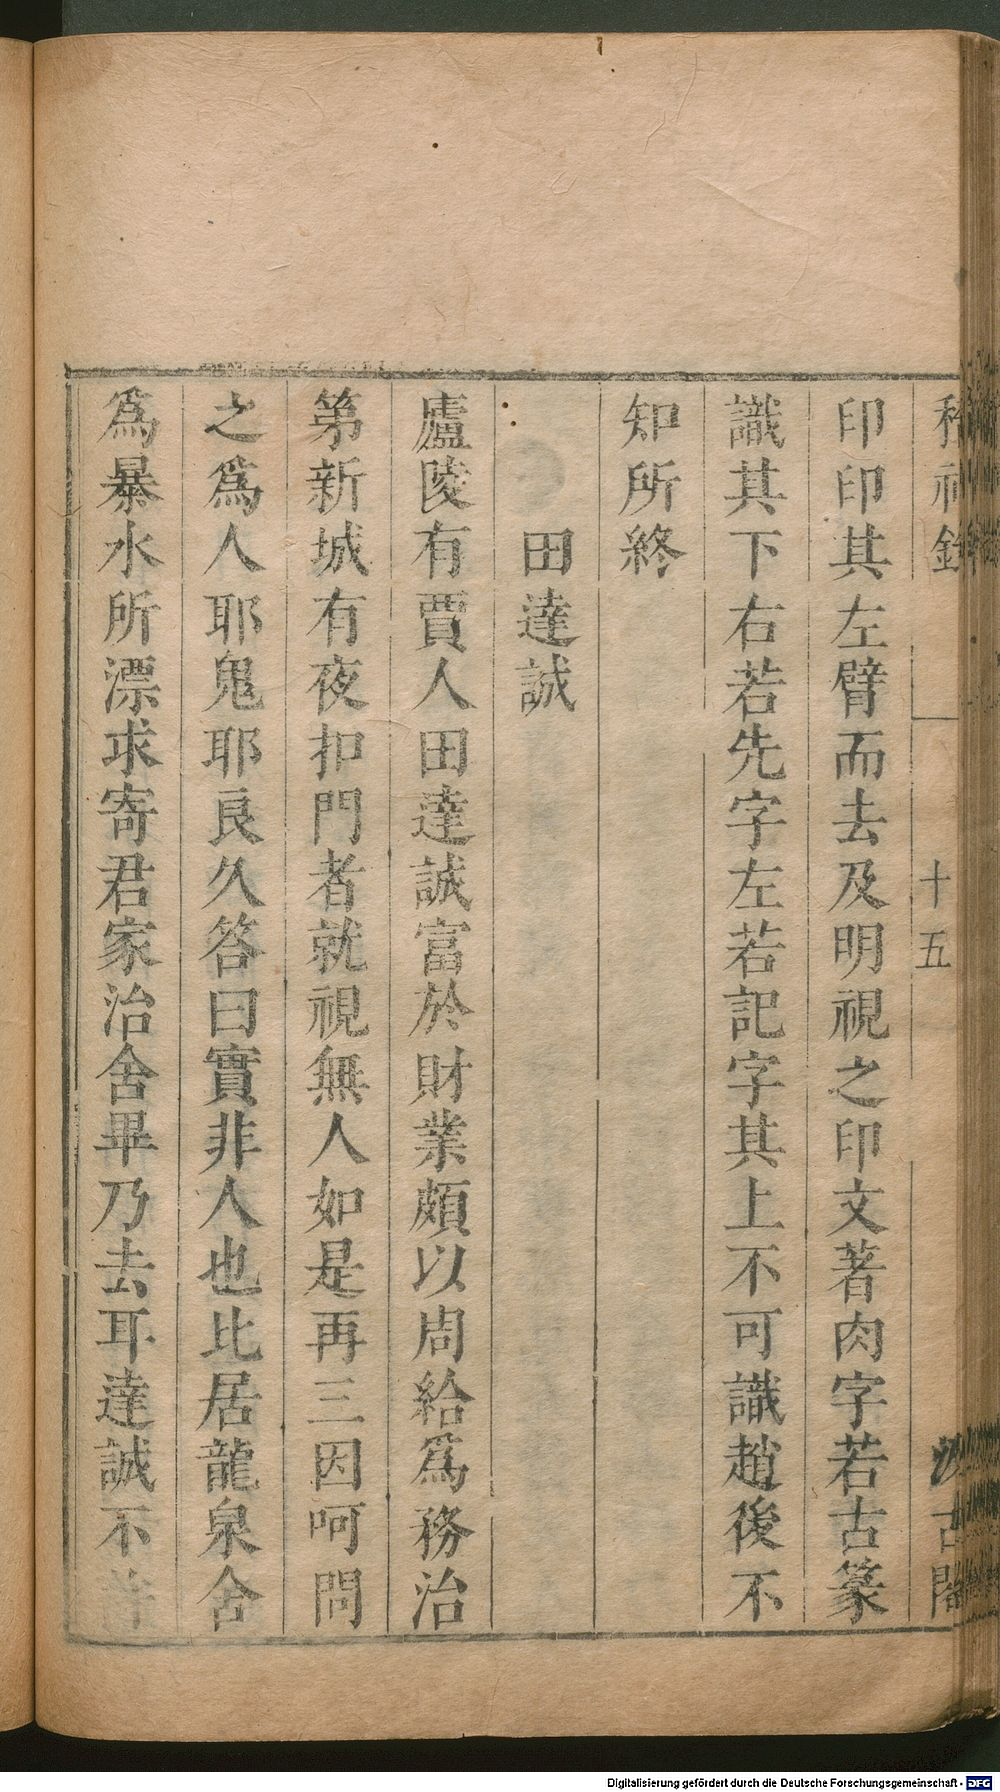 稽神錄
十五
汲古閣
印印其左臂而去及明視之印文著肉字若古篆
識其下右若先字左若記字其上不可識趙後不
知所終
田達誠
廬陵有賈人田達誠富於財業頗以周給爲務治
第新城有夜扣門者就視無人如是再三因呵問
之爲人耶鬼耶良久答曰實非人也比居龍泉舍
爲暴水所漂求寄君家治舍畢乃去耳達誠不許
Digitalisierung gefördert durch die Deutsche Forschungsgemeinschaft - DFG